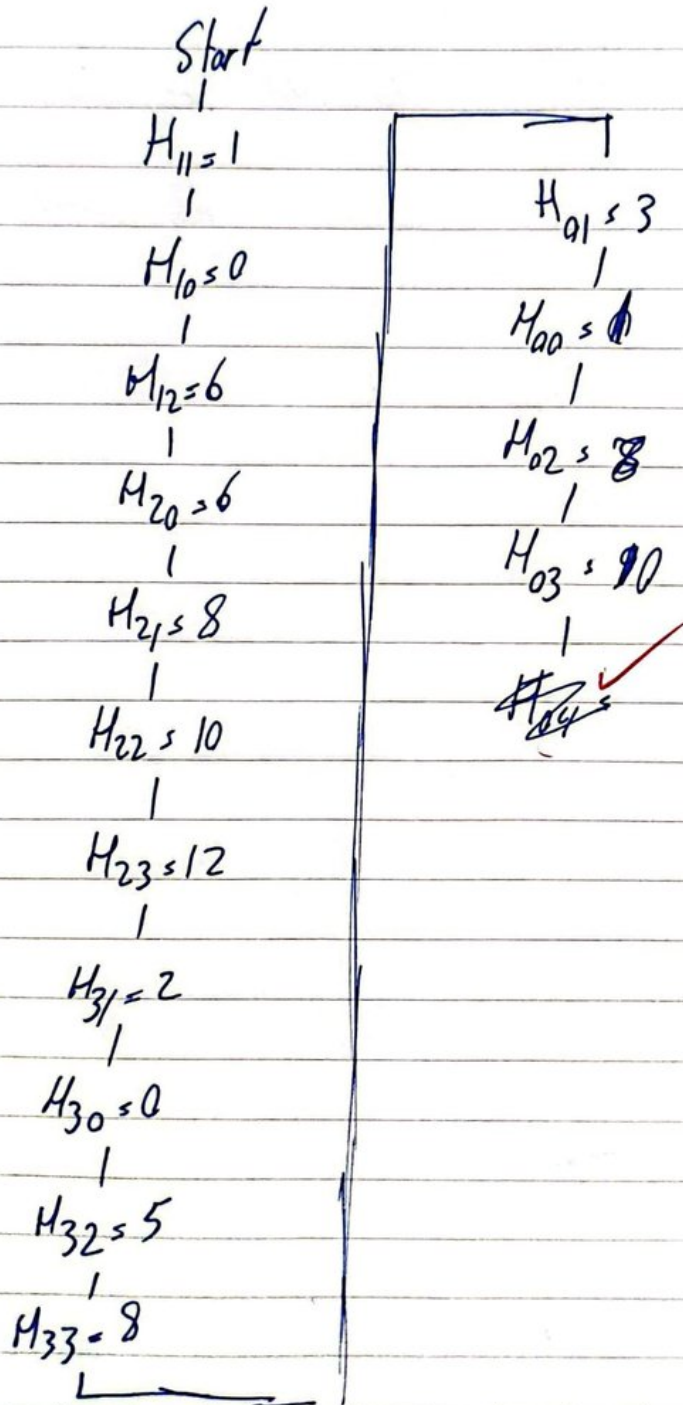 Start
H11 = 1
H10 = 0
H12 = 6
H20 = 6
H21 = 8
H22 = 10
H23 = 12
H31 = 2
H30 = 0
H32 = 5
H33 = 8
H01 = 3
H00 =
H02 =
H03 = 10